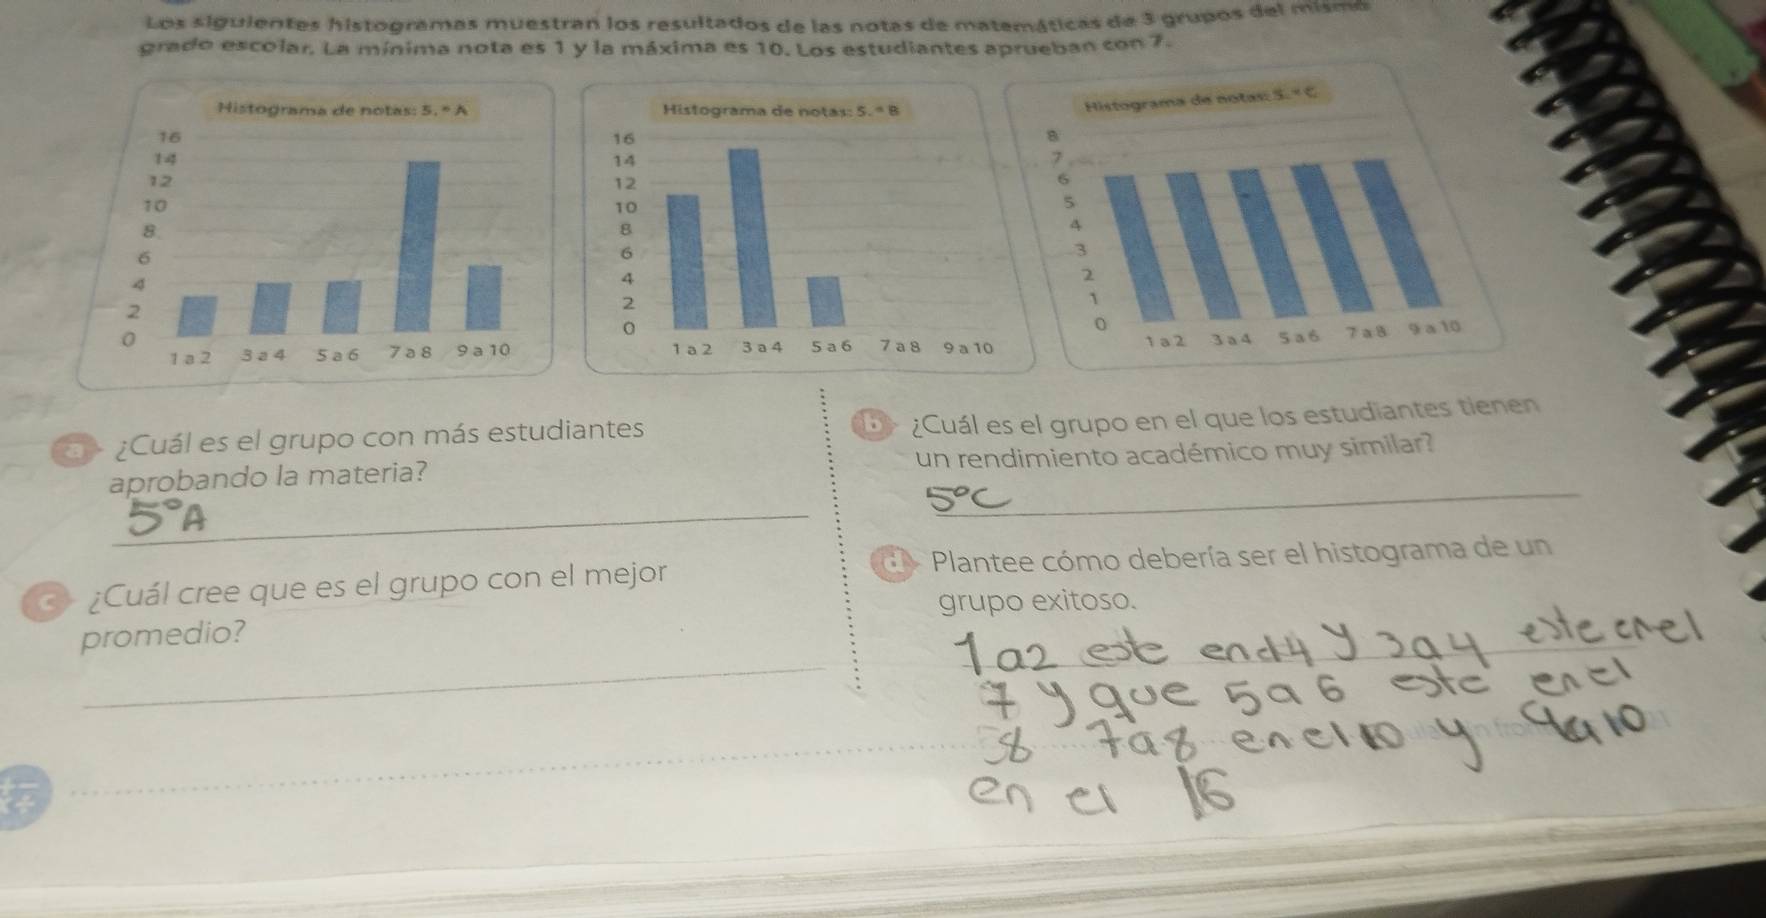 Los siguientes histogramas muestran los resultados de las notas de matemáticas de 3 grupos del mismo
grado escolar. La mínima nota es 1 y la máxima es 10. Los estudiantes aprueban con 7.
Histograma de notas: 5.° A
16
14
12
10
8
6
4
2
0
1 a 2 3 a 4 5 a 6 7 a 8 9 a 10
Histograma de notas: 5.° B
16
14
12
10
8
6
4
2
0
1 a 2 3 a 4 5 a 6 7 a 8 9 a 10
Histograma de notas: 5.° C
8
7
6
5
4
3
2
1
0
1 a 2 3 a 4 5 a 6 7 a 8 9 a 10
a ¿Cuál es el grupo con más estudiantes
aprobando la materia?
5°A
b ¿Cuál es el grupo en el que los estudiantes tienen
un rendimiento académico muy similar?
5°C
c ¿Cuál cree que es el grupo con el mejor
promedio?
d Plantee cómo debería ser el histograma de un
grupo exitoso.
1 a 2 este en el 4 y 3 a 4 este en el
7 y que 5 a 6 este en el
8 7 a 8 en el 10 y 9 a 10
en el 16